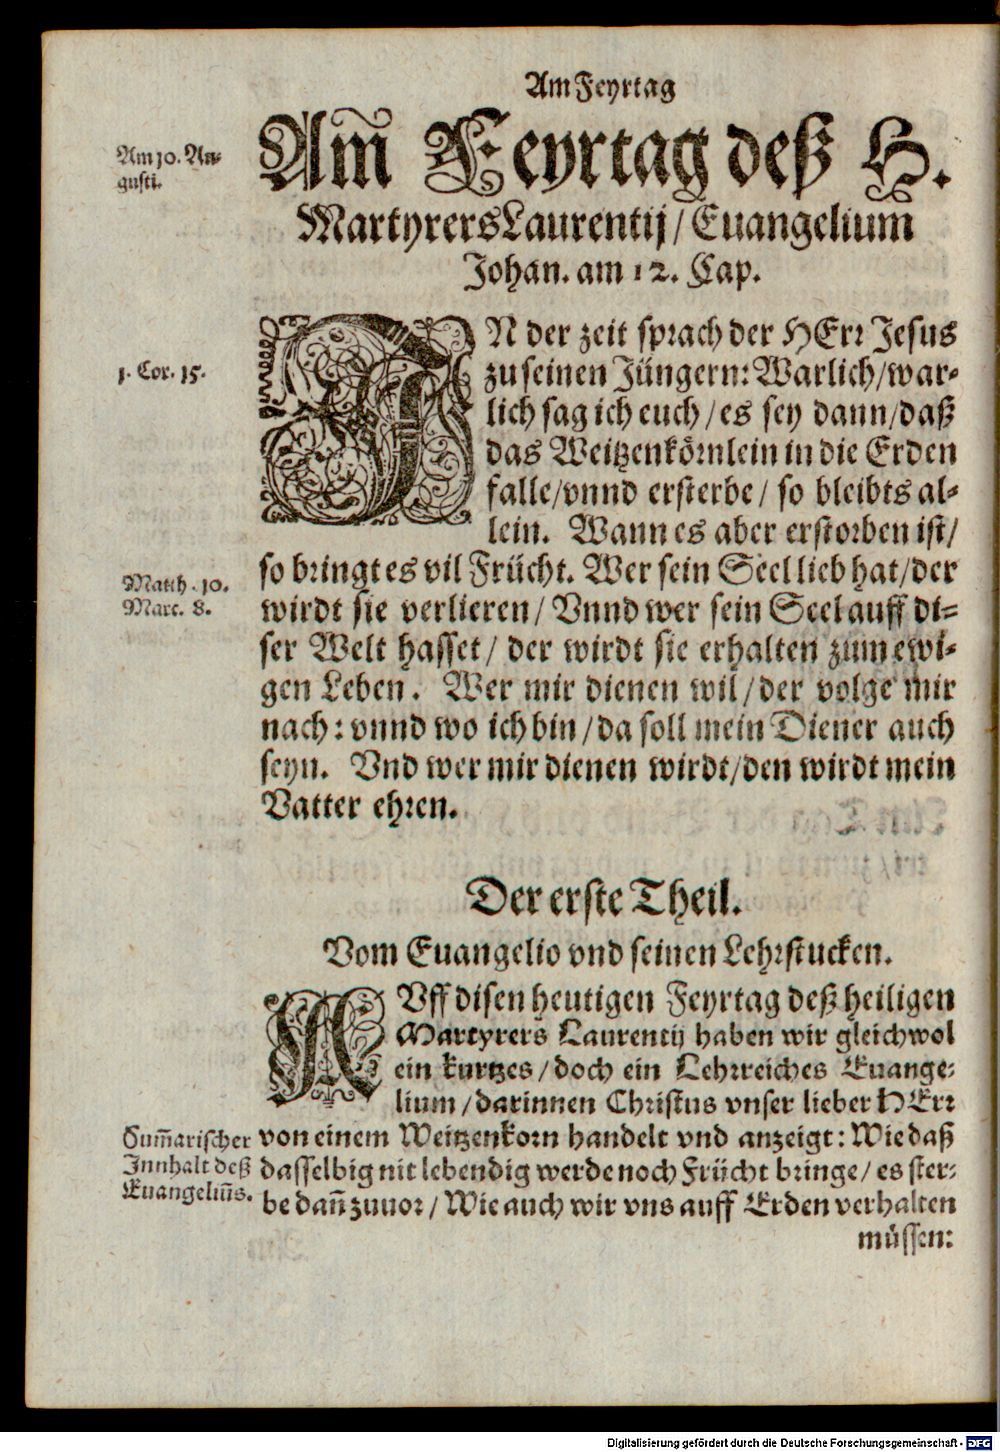 Am Feyrtag
Am 10. Au-
gusti.
Am̃ Feyrtag deß H.
Martyrers Laurentij / Euangelium
Johan. am 12. Cap.
1. Cor. 15.
IN der zeit sprach der HErr Jesus
zu seinen Jüngern: Warlich / war-
lich sag ich euch / es sey dann / daß
das Weitzenkörnlein in die Erden
falle / vnnd ersterbe / so bleibts al-
lein. Wann es aber erstorben ist /
so bringt es vil Frücht. Wer sein Seel lieb hat / der
Matth. 10.
Marc. 8.
wirdt sie verlieren / Vnnd wer sein Seel auff di-
ser Welt hasset / der wirdt sie erhalten zum ewi-
gen Leben. Wer mir dienen wil / der volge mir
nach: vnnd wo ich bin / da soll mein Diener auch
seyn. Vnd wer mir dienen wirdt / den wirdt mein
Vatter ehren.
Der erste Theil.
Vom Euangelio vnd seinen Lehrstucken.
AVff disen heutigen Feyrtag deß heiligen
Martyrers Laurentij haben wir gleichwol
ein kurtzes / doch ein Lehrreiches Euange-
lium / darinnen Christus vnser lieber HErr
Sum̃arischer
Innhalt deß
Euangeliũs.
von einem Weitzenkorn handelt vnd anzeigt: Wie daß
dasselbig nit lebendig werde noch Frücht bringe / es ster-
be dañ zuuor / Wie auch wir vns auff Erden verhalten
müssen:
Digitalisierung gefördert durch die Deutsche Forschungsgemeinschaft - DFG